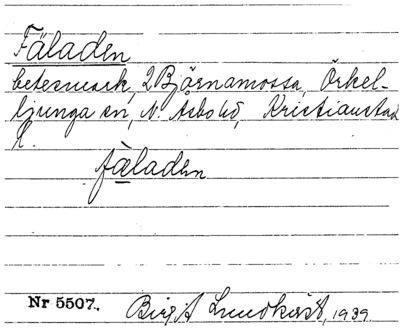 Fäladen
betesmark, 2 Björnamossa, Örkel-
ljunga sn, N. Åsbo hd, Kristianstad
l.
fàladen
Nr 5507. Birgit Lundkvist, 1939.